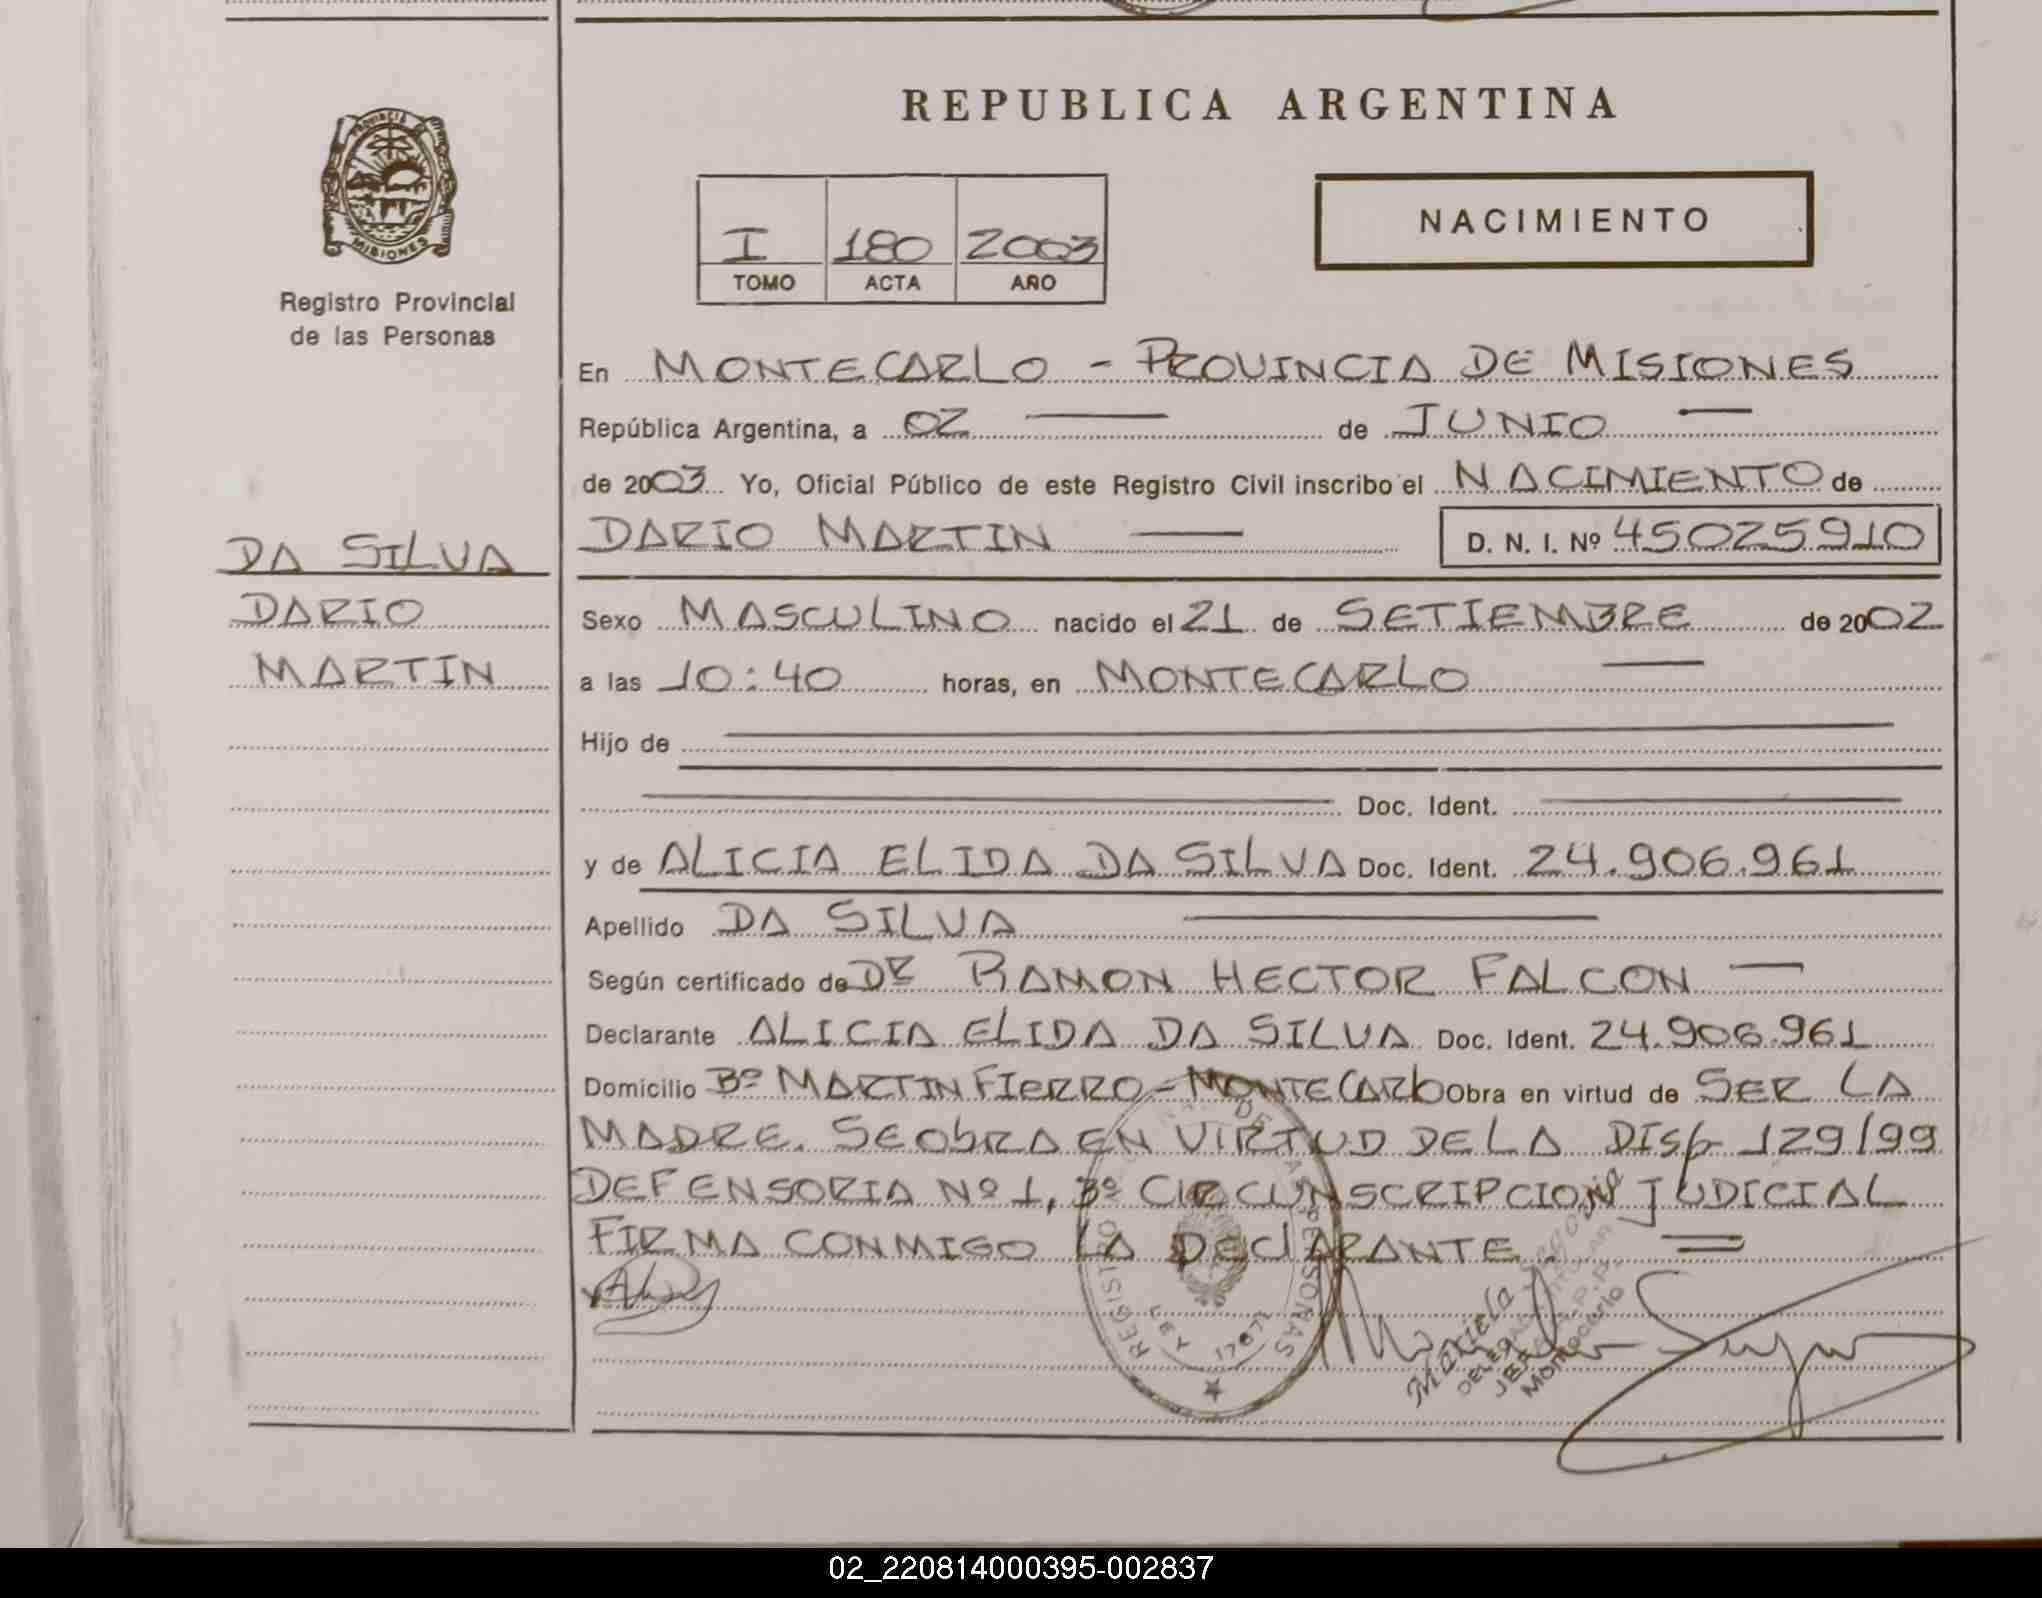 REPUBLICA ARGENTINA
PROVINCIA DE
MISIONES
Registro Provincial
de las Personas
I 180 2003
TOMO ACTA AÑO
NACIMIENTO
En MONTECARLO - PROVINCIA DE MISIONES
República Argentina, a 02 de JUNIO
de 2003 Yo, Oficial Público de este Registro Civil inscribo el NACIMIENTO de
DARIO MARTIN D. N. I. Nº 45025910
DA SILVA
DARIO
MARTIN
Sexo MASCULINO nacido el 21 de SETIEMBRE de 2002
a las 10:40 horas, en MONTECARLO
Hijo de
Doc. Ident.
y de ALICIA ELIDA DA SILVA Doc. Ident. 24.906.961
Apellido DA SILVA
Según certificado de DR RAMON HECTOR FALCON
Declarante ALICIA ELIDA DA SILVA Doc. Ident. 24.906.961
Domicilio Bº MARTIN FIERRO - MONTECARLO Obra en virtud de SER LA
MADRE. SE OBRA EN VIRTUD DE LA DISP 129/99
DEFENSORIA Nº 1, 3º CIRCUNSCRIPCION JUDICIAL
FIRMA CONMIGO LA DECLARANTE =
REGISTRO DE LAS PERSONAS
LEY 17671
Mariela Segovia
Montecarlo
02_220814000395-002837